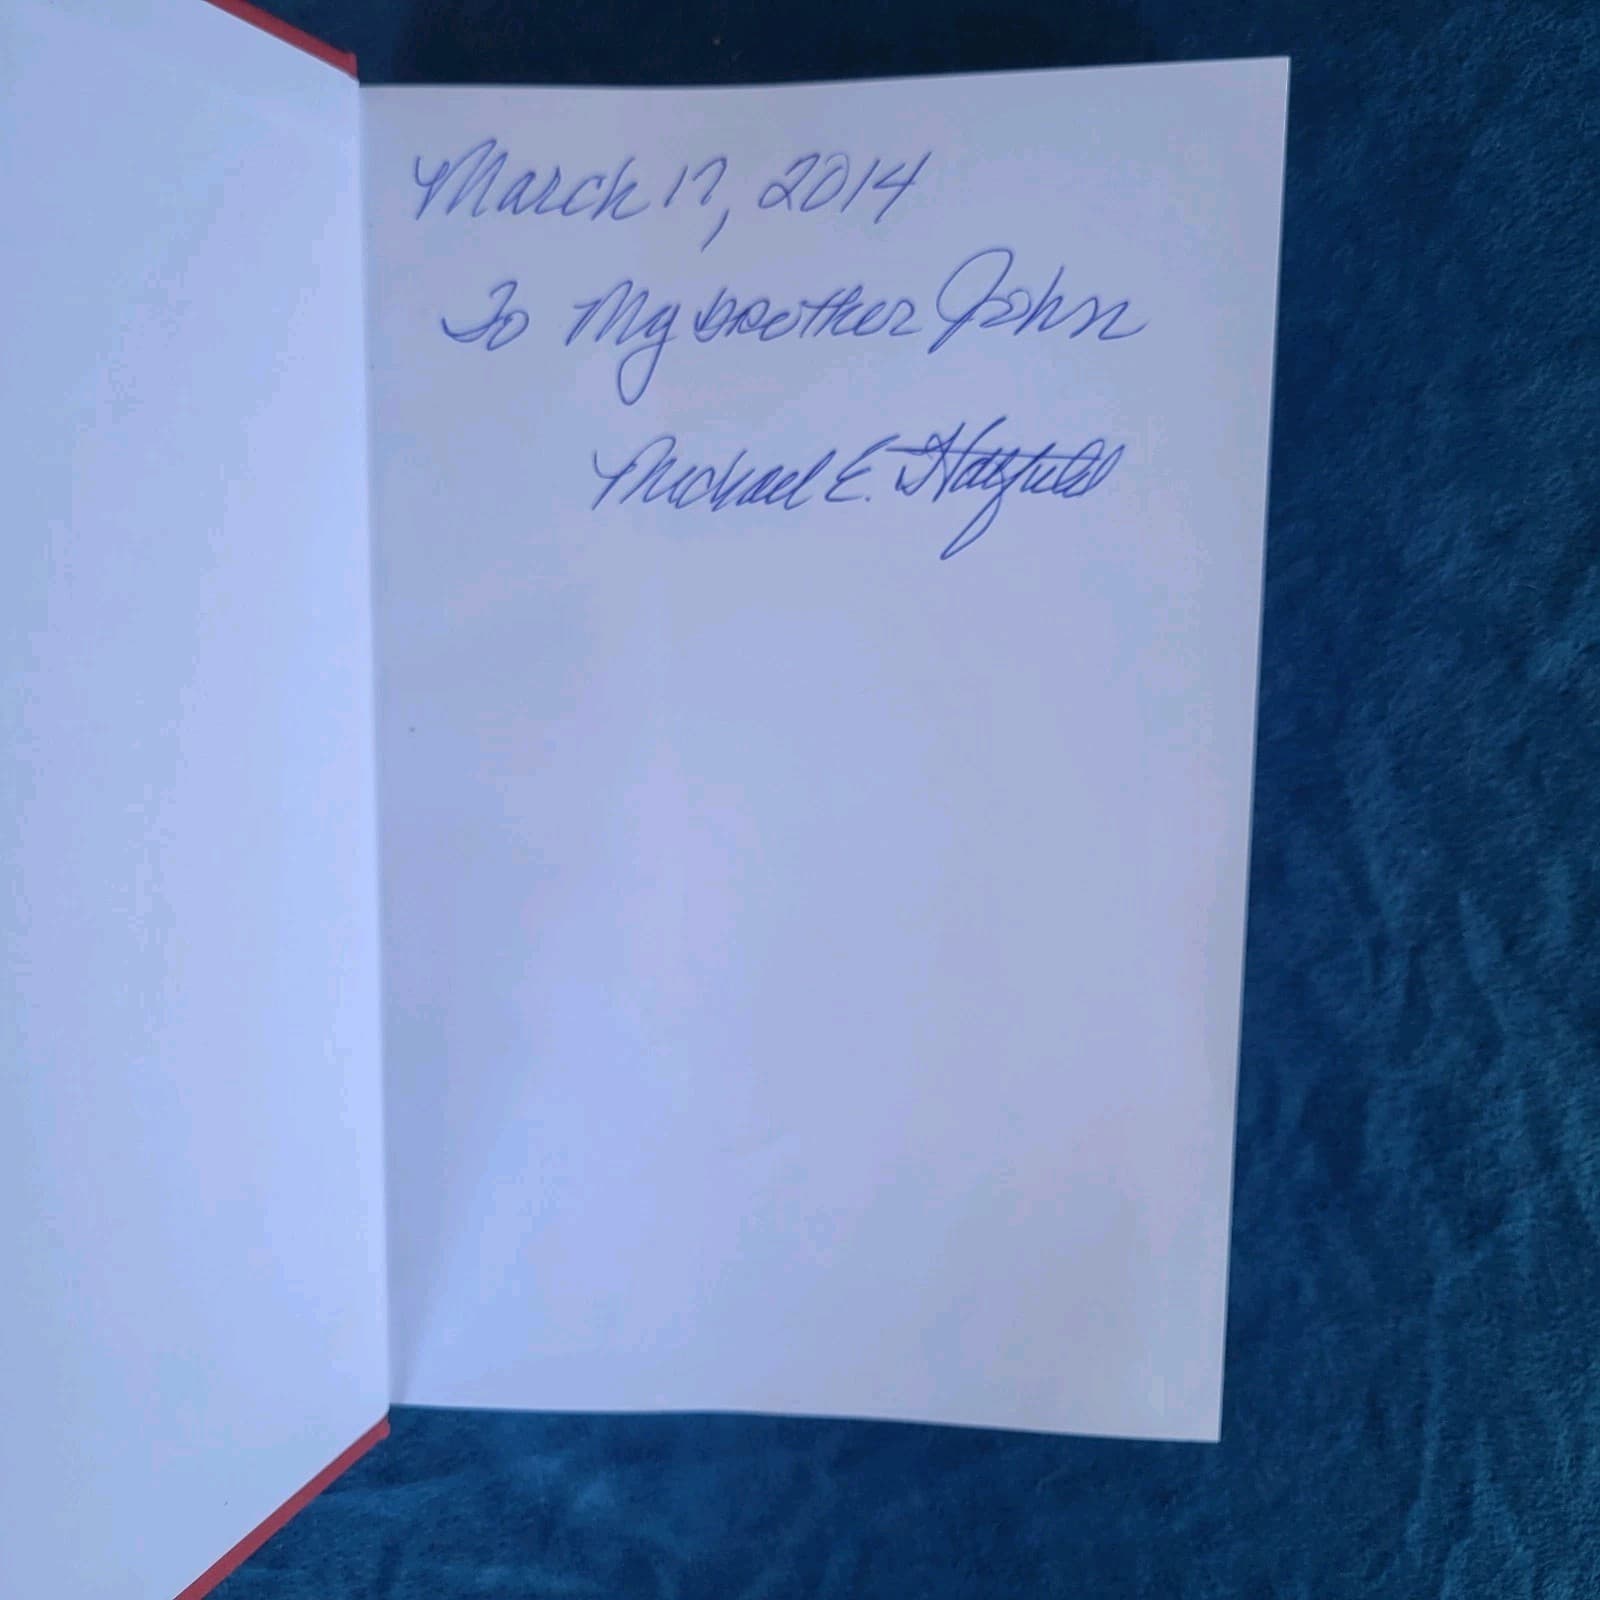 March 17, 2014
To My brother John
Michael E. Hatfield